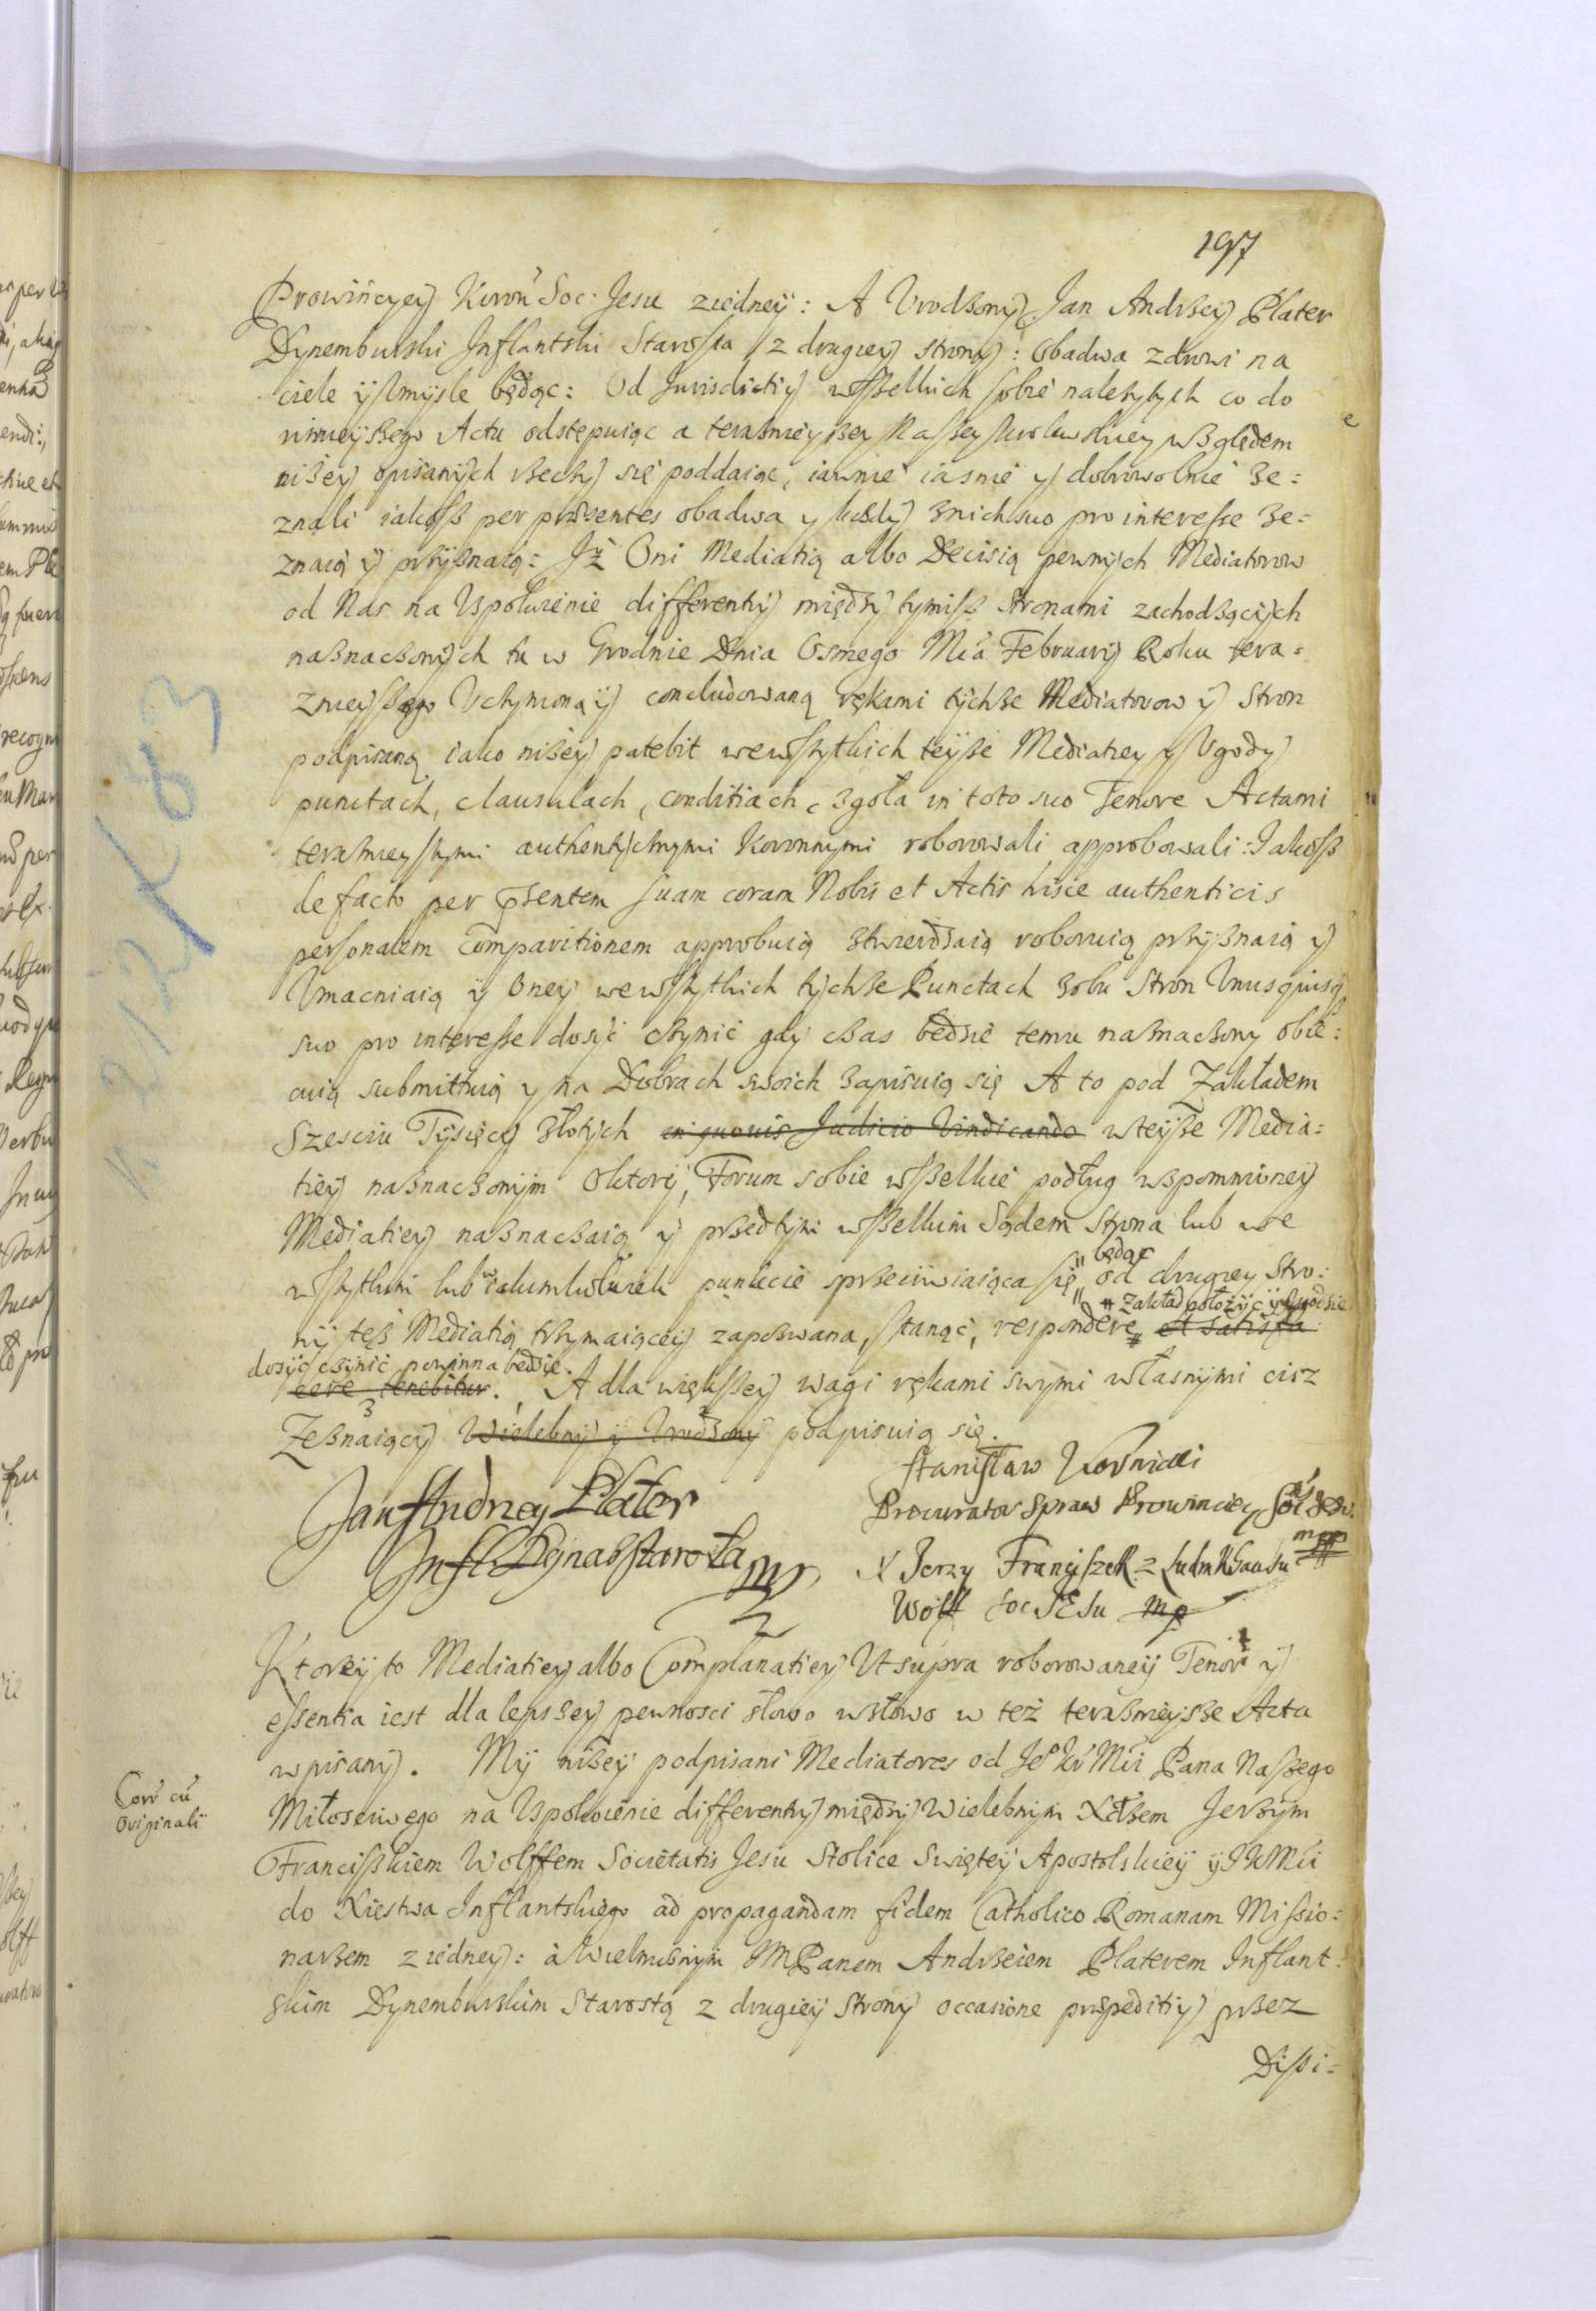 197
Prowincyey Koron Soc: Jesu ziedney: A Urodzony Jan Andrzey Plater
Dynemburski Inflantski Starosta z drugiey strony: obadwa zdrowi na
ciele y smysle będąc: Od Jurisdictiy wszelkich sobie należytych co do
ninieyszego Actu odstępuiąc a terazmieyszey Naszey Krolewskiey względem
niżey opisanych rzeczy się poddaiąc, iawnie iasnie y dobrowolnie ze=
znali iakosz per præsentes obadwa y każdy znich suo pro interesse ze=
znaią y przyznaią: Iż Oni Mediatią albo Decisią pewnych Mediatorow
od Nas na Uspokoienie differentiy między tymisz Stronami zachodzących
naznaczonych tu w Grodnie Dnia Osmego Mca February Roku tera=
znieyszego Uczynioną y concludowaną rękami tychże Mediatorow y Stron
podpisaną iako niżey patebit wewszytkich teyże Mediatiey y Ugody
punctach, clausulach, conditiach, zgoła in toto suo Tenore Actami
terazmieyszymi authentycznymi Koronnymi roborowali approbowali: Iakosz
de facto per psentem suam coram Nobis et Actis hisce authenticis
personalem comparitionem approbuią ztwierdzaią roboruią przyznaią y
Umacniaią y oney wewszytkich tychże Punctach zobu Stron Unusquisq
suo pro interesse dosyć czynić gdy czas będzie temu naznaczony obie=
cuią submittuią y na Dobrach swoich zapisuią się A to pod Zakładem
Szesciu Tysięcy Złotych in quovis Judicio Vindicando wteyże Media=
tiey naznaczonym Oktory, Forum sobie wszelkie podług wspomnioney
Mediatiey naznaczaią y przedtym wszelkim Sądem Strona lub we
wszytkim lub wiakimkolwiek punkcie sprzeciwiaiąca się " będąc " od drugiey Stro:
ny tęż Mediatią trzymaiącey zapozwana, stanąć, respondere # zakład położyć y Ugodzie # et satisfa
dosyć czynić powinna będzie.
cere tenebitur. A dla większey wagi rękami swymi własnymi cisz
Zeznaiący Wielebny y Urodzony podpisuią się.
Jan Andrzey Plater
Infl: Dynab Starosta mp
Stanisław Wornicki
Procurator Spraw Prowinciey Soc Jesu.
mpp
X Jerzy Franciszek z Ludinkhausu
Wolff Soc JEsu mp
Ktorey to Mediatiey albo Complanatiey Ut supra roborowaney Tenor y
essentia iest dla lepszey pewnosci słowo wsłowo w też terazmieysze Acta
wpisany. My niżey podpisani Mediatores od Je° Kr Mci Pana Naszego
Corr cu
originali
Miłosciwego na Uspokoienie differentiy między Wielebnym Xdzem Jerzym
Franciszkiem Wolffem Societatis Jesu Stolice Swiętey Apostolskiey y JKMci
do Xiestwa Inflantskiego ad propagandam fidem Catholico Romanam Missio=
narzem z iedney: a Wielmożnym JMPanem Andrzeiem Platerem Inflant=
skim Dynemburskim Starostą z drugiey Strony occasione præpeditiy przez
Dissi=